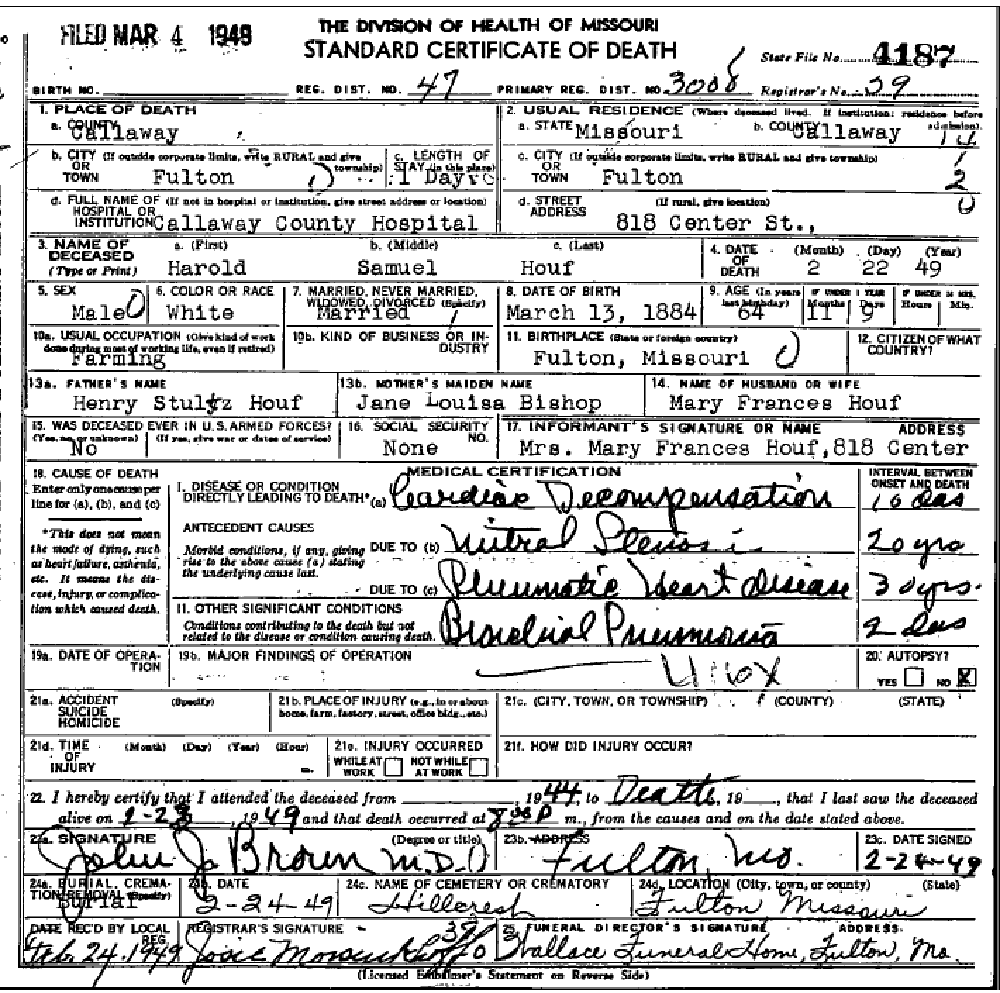 FILED MAR 4 1949
THE DIVISION OF HEALTH OF MISSOURI
STANDARD CERTIFICATE OF DEATH
State File No. 4187
BIRTH NO. REG. DIST. NO. 47 PRIMARY REG. DIST. NO. 3008 Registrar's No. 29
1. PLACE OF DEATH
a. COUNTY Callaway
2. USUAL RESIDENCE (Where deceased lived. If institution: residence before admission).
a. STATE Missouri b. COUNTY Callaway
b. CITY (If outside corporate limits, write RURAL and give township) OR TOWN Fulton
c. LENGTH OF STAY (in this place) 1 Day
c. CITY (If outside corporate limits, write RURAL and give township) OR TOWN Fulton
d. FULL NAME OF (If not in hospital or institution, give street address or location) HOSPITAL OR INSTITUTION Callaway County Hospital
d. STREET ADDRESS (If rural, give location) 818 Center St.,
3. NAME OF DECEASED (Type or Print) a. (First) b. (Middle) c. (Last)
Harold Samuel Houf
4. DATE OF DEATH (Month) (Day) (Year)
2 22 49
5. SEX Male
6. COLOR OR RACE White
7. MARRIED, NEVER MARRIED, WIDOWED, DIVORCED (Specify) Married
8. DATE OF BIRTH March 13, 1884
9. AGE (In years last birthday) 64 IF UNDER 1 YEAR Months 11 Days 9 IF UNDER 24 HRS. Hours Min.
10a. USUAL OCCUPATION (Give kind of work done during most of working life, even if retired) Farming
10b. KIND OF BUSINESS OR INDUSTRY
11. BIRTHPLACE (State or foreign country) Fulton, Missouri
12. CITIZEN OF WHAT COUNTRY?
13a. FATHER'S NAME Henry Stultz Houf
13b. MOTHER'S MAIDEN NAME Jane Louisa Bishop
14. NAME OF HUSBAND OR WIFE Mary Frances Houf
15. WAS DECEASED EVER IN U.S. ARMED FORCES? (Yes, no, or unknown) (If yes, give war or dates of service) No
16. SOCIAL SECURITY NO. None
17. INFORMANT'S SIGNATURE OR NAME ADDRESS
Mrs. Mary Frances Houf, 818 Center
18. CAUSE OF DEATH
Enter only one cause per line for (a), (b), and (c)
*This does not mean the mode of dying, such as heart failure, asthenia, etc. It means the disease, injury, or complication which caused death.
MEDICAL CERTIFICATION
INTERVAL BETWEEN ONSET AND DEATH
I. DISEASE OR CONDITION DIRECTLY LEADING TO DEATH* (a) Cardiac Decompensation 10 das
ANTECEDENT CAUSES
Morbid conditions, if any, giving rise to the above cause (a) stating the underlying cause last.
DUE TO (b) Mitral Stenosis 20 yrs
DUE TO (c) Rheumatic Heart Disease 30 yrs.
II. OTHER SIGNIFICANT CONDITIONS
Conditions contributing to the death but not related to the disease or condition causing death. Bronchial Pneumonia 2 das
19a. DATE OF OPERATION
19b. MAJOR FINDINGS OF OPERATION
20. AUTOPSY? YES NO X
21a. ACCIDENT SUICIDE HOMICIDE (Specify)
21b. PLACE OF INJURY (e.g., in or about home, farm, factory, street, office bldg., etc.)
21c. (CITY, TOWN, OR TOWNSHIP) (COUNTY) (STATE)
21d. TIME OF INJURY (Month) (Day) (Year) (Hour) m.
21e. INJURY OCCURRED WHILE AT WORK NOT WHILE AT WORK
21f. HOW DID INJURY OCCUR?
22. I hereby certify that I attended the deceased from , 1944, to Death, 19 , that I last saw the deceased
alive on 2-23, 1949 and that death occurred at 8:00P m., from the causes and on the date stated above.
23a. SIGNATURE (Degree or title) John J. Brown M.D.
23b. ADDRESS Fulton, Mo.
23c. DATE SIGNED 2-24-49
24a. BURIAL, CREMATION, REMOVAL Burial
24b. DATE 2-24-49
24c. NAME OF CEMETERY OR CREMATORY Hillcrest
24d. LOCATION (City, town, or county) (State) Fulton Missouri
DATE REC'D BY LOCAL REG. Feb. 24, 1949
REGISTRAR'S SIGNATURE Josie
25. FUNERAL DIRECTOR'S SIGNATURE ADDRESS
Wallace Funeral Home, Fulton, Mo.
(Licensed Embalmer's Statement on Reverse Side)